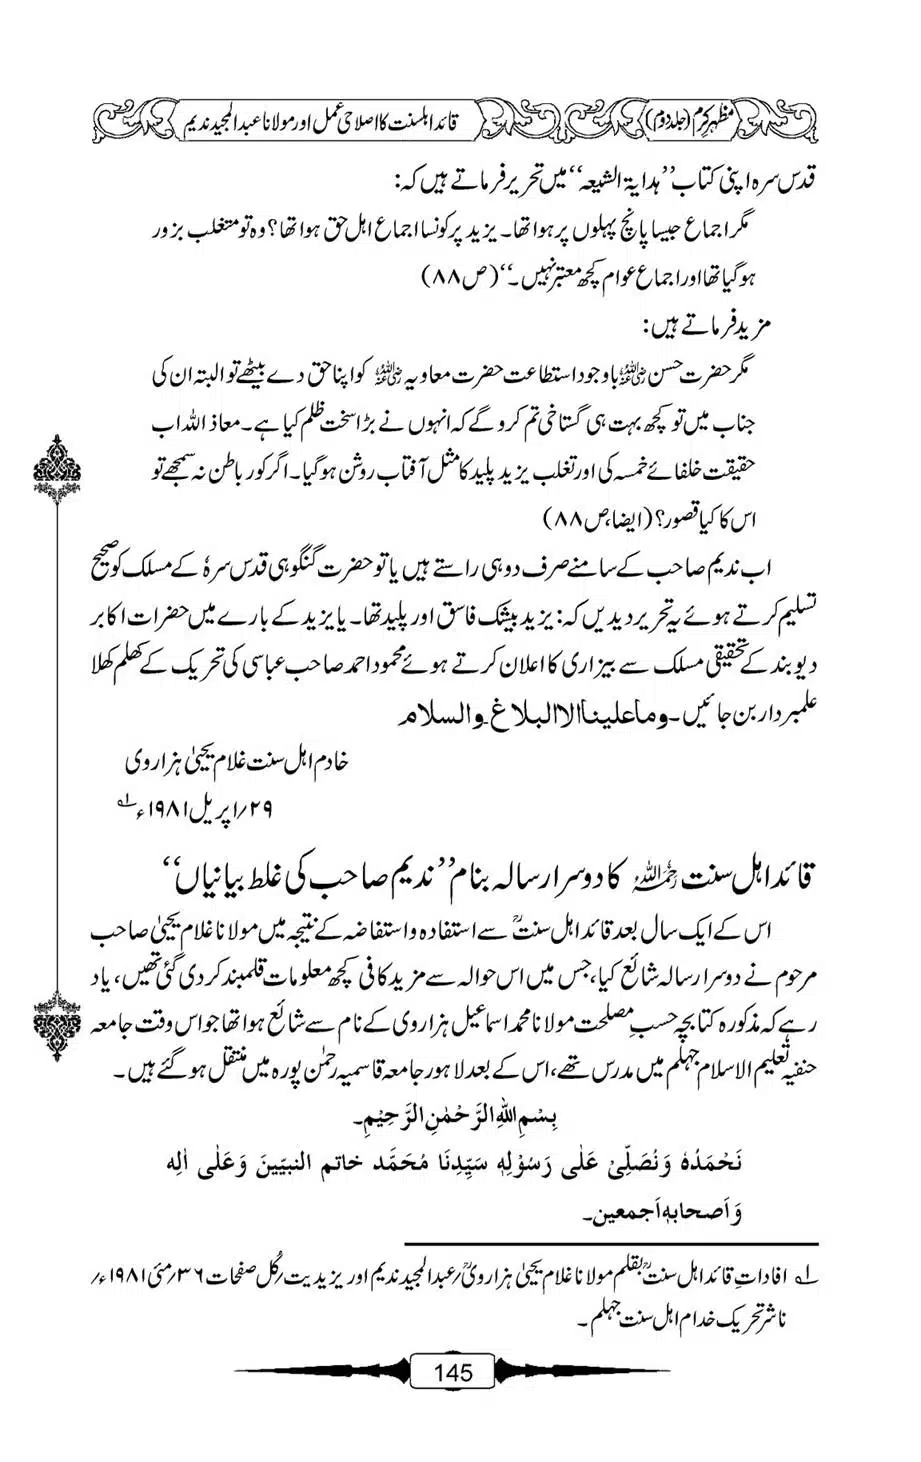 مظہرِ کرم (جلد دوم)
قائد اہلسنت کا اصلاحی عمل اور مولانا عبدالمجید ندیم
قدس سرہ اپنی کتاب ”ہدایۃ الشیعہ“ میں تحریر فرماتے ہیں کہ:
مگر اجماع جیسا پانچ پہلوں پر ہوا تھا۔ یزید پر کونسا اجماع اہل حق ہوا تھا؟ وہ تو متغلب بزور
ہو گیا تھا اور اجماع عوام کچھ معتبر نہیں۔“ (ص ۸۸)
مزید فرماتے ہیں:
مگر حضرت حسن ؓ باوجود استطاعت حضرت معاویہ ؓ کو اپنا حق دے بیٹھے تو البتہ ان کی
جناب میں تو کچھ بہت ہی گستاخی تم کرو گے کہ انہوں نے بڑا سخت ظلم کیا ہے۔ معاذ اللہ اب
حقیقت خلفائے خمسہ کی اور تغلب یزید پلید کا مثل آفتاب روشن ہو گیا۔ اگر کور باطن نہ سمجھے تو
اس کا کیا قصور؟ (ایضا، ص ۸۸)
اب ندیم صاحب کے سامنے صرف دو ہی راستے ہیں یا تو حضرت گنگوہی قدس سرہٗ کے مسلک کو صحیح
تسلیم کرتے ہوئے یہ تحریر دیدیں کہ: یزید بیشک فاسق اور پلید تھا۔ یا یزید کے بارے میں حضرات اکابر
دیوبند کے تحقیقی مسلک سے بیزاری کا اعلان کرتے ہوئے محمود احمد صاحب عباسی کی تحریک کے کھلم کھلا
علمبردار بن جائیں۔ وما علینا الا البلاغ۔ والسلام
خادم اہل سنت غلام یحییٰ ہزاروی
۲۹/اپریل ۱۹۸۱ء ۱؎
قائد اہل سنت ؒ کا دوسرا رسالہ بنام ”ندیم صاحب کی غلط بیانیاں“
اس کے ایک سال بعد قائد اہل سنتؒ سے استفادہ و استفاضہ کے نتیجہ میں مولانا غلام یحییٰ صاحب
مرحوم نے دوسرا رسالہ شائع کیا، جس میں اس حوالہ سے مزید کافی کچھ معلومات قلمبند کر دی گئی تھیں، یاد
رہے کہ مذکورہ کتابچہ حسبِ مصلحت مولانا محمد اسماعیل ہزاروی کے نام سے شائع ہوا تھا جو اس وقت جامعہ
حنفیہ تعلیم الاسلام جہلم میں مدرس تھے، اس کے بعد لاہور جامعہ قاسمیہ رحمٰن پورہ میں منتقل ہو گئے ہیں۔
بِسْمِ اللّٰهِ الرَّحْمٰنِ الرَّحِيْمِ۔
نَحْمَدُهٗ وَ نُصَلِّىْ عَلٰى رَسُوْلِهٖ سَيِّدِنَا مُحَمَّد خاتم النبيّينَ وَعَلٰى اٰلِه
وَ اَصحابهٖ اَجمعين۔
۱؎ افاداتِ قائد اہل سنتؒ بقلم مولانا غلام یحییٰ ہزارویؒ/عبدالمجید ندیم اور یزیدیت/ کُل صفحات ۳۶/مئی ۱۹۸۱ء/
ناشر تحریک خدام اہل سنت جہلم۔
145